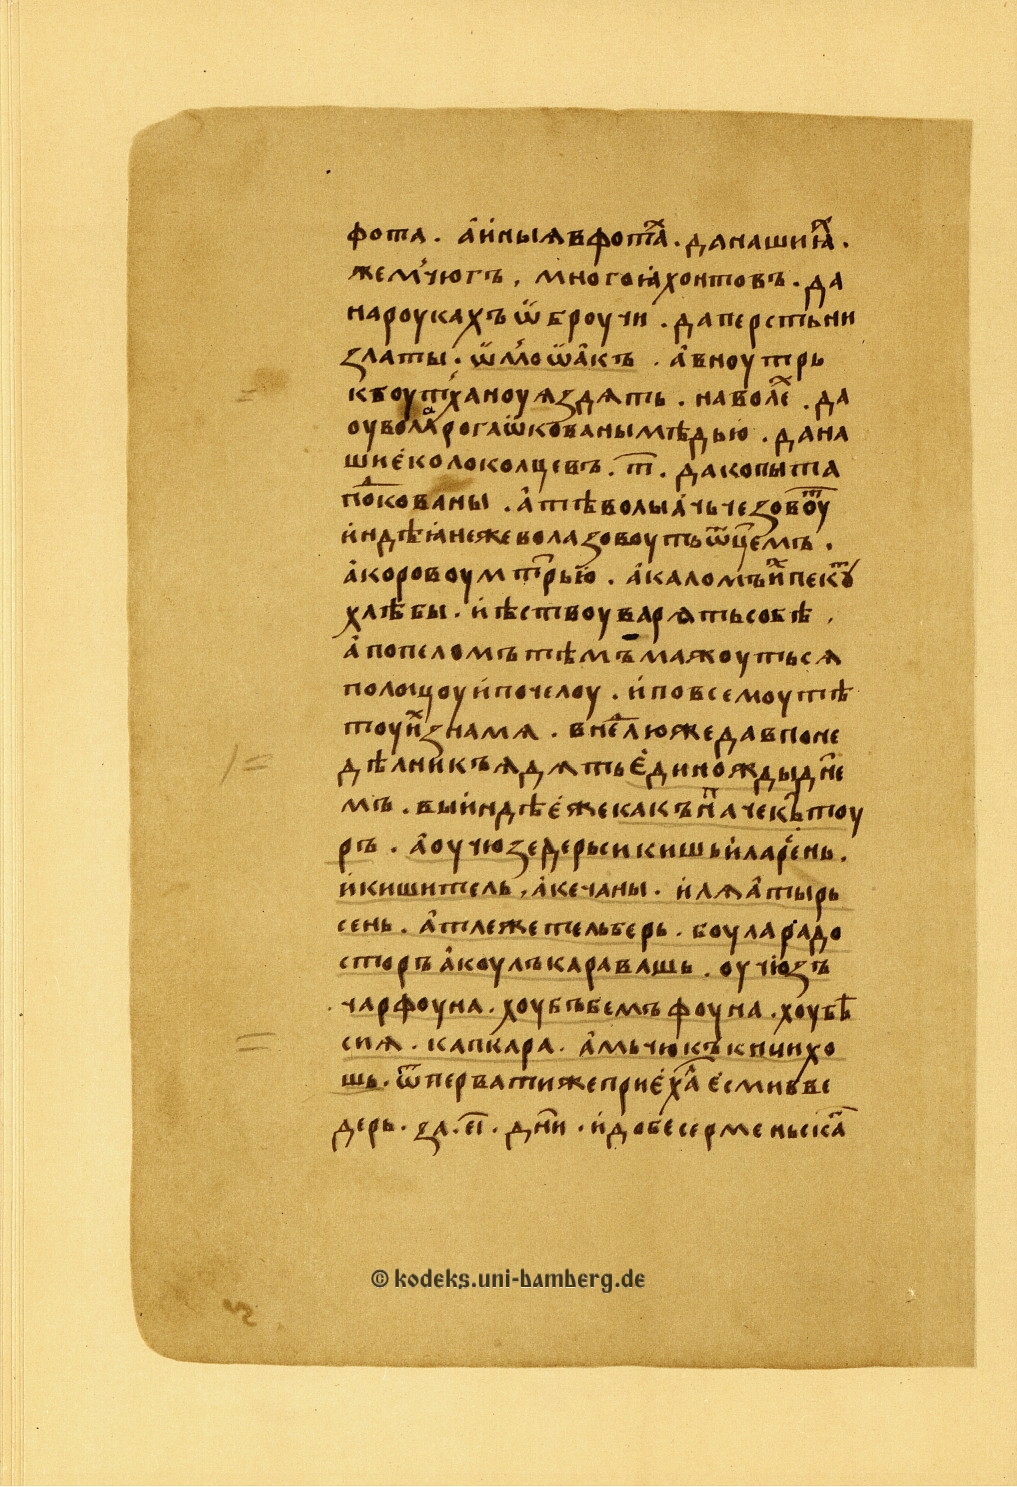 фота . а҆и҆ныѧвфотаⷯ . данашиꙗⷯ .
жемчюгъ , многоꙗхонтовъ . да
нароукахъѿброучи . даперстьни
ꙁлаты . ѿлⷧоѿа҆къ . а҆вноутрь
къбоутханоуѧꙁдѧть . наволеⷯ . да
оуволаⷶрогаѿкованымѣдью . дана
шиеколоколцевъ . т҃ . дакопыта
поⷣкованы . а҆тѣволыа҆чьчеꙁовоⷮу
и҆ндѣꙗнежеволаꙁовоутьѿц҃емъ .
а҆коровоумт҃рью . а҆каломъиⷯпекⷮу
хлѣбы . и҆ѣствоуварѧтьсобѣ ,
а҆попеломътѣмъмажоутьсѧ
полоцоуи҆почелоу . и҆повсемоутѣ
тоуиⷯꙁнамѧ . внеⷣлюжедавпоне
дѣлникъѧдѧтьединождыдн҃е
мъ . выи҆ндѣежекакъпⷱачектоу
ръ . а҆оучюꙁедерьсикишьи҆ларсень .
и҆кишитель , а҆кечаны . и҆лѧа҆тырь
сень . а҆тлежетельберь . боуларадо
сторъа҆коулъкаравашь . оучюꙁъ
. чарфоуна . хоубъбемъфоуна . хоубѣ
сиѧ . капкара . а҆мьчюкъкичихо
шь . ѿперватижеприеⷯхаⷧесмивбе
дерь . ꙁа . е҃і . дн҃и . и҆добесерменьскаⷢ
© kodeks.uni-bamberg.de